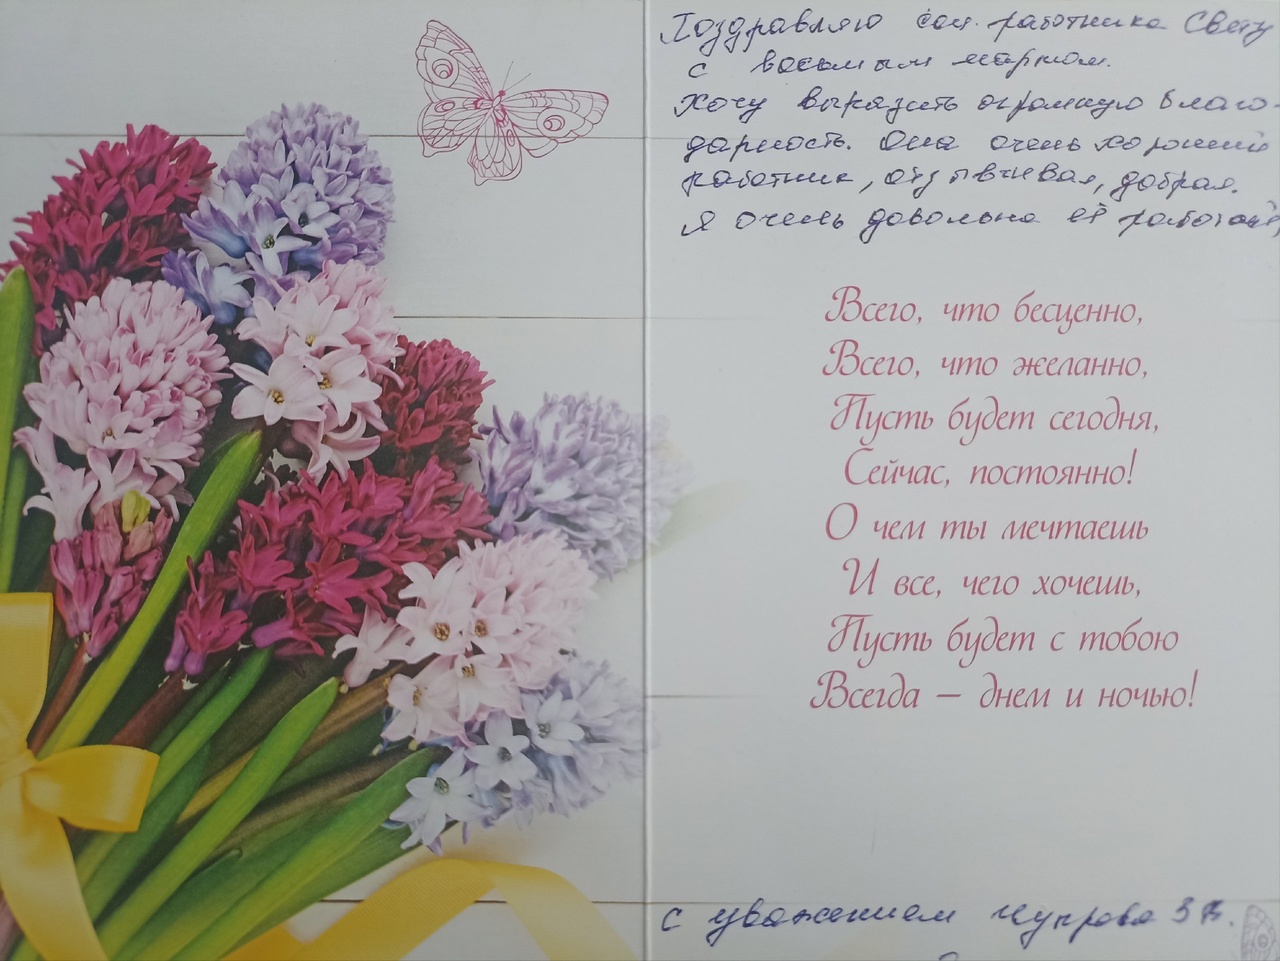 Поздравляю соц. работника Свету
с восьмым мартом.
Хочу выразить огромную благо-
дарность. Она очень хороший
работник, отзывчивая, добрая.
Я очень довольна её работой,
Всего, что бесценно,
Всего, что желанно,
Пусть будет сегодня,
Сейчас, постоянно!
О чем ты мечтаешь
И все, чего хочешь,
Пусть будет с тобою
Всегда – днем и ночью!
с уважением